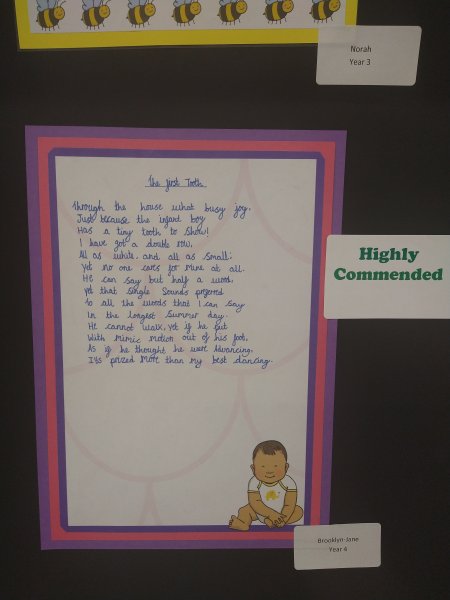 Norah
Year 3
The first Tooth
Through the house what busy joy.
Just because the infant boy
Has a tiny tooth to show!
I have got a double row,
All as white, and all as small;
Yet no one cares for mine at all.
He can say but half a word,
Yet that single sounds preferred
To all the words that I can say
In the longest summer day.
He cannot walk, yet if he put
With mimic motion out of his foot.
As if he thought he were advancing.
It's prized more than my best dancing.
Highly
Commended
Brooklyn-Jane
Year 4